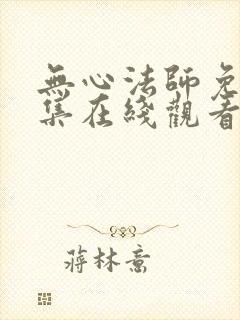 無心法師免
集在綫觀看
蔣林意